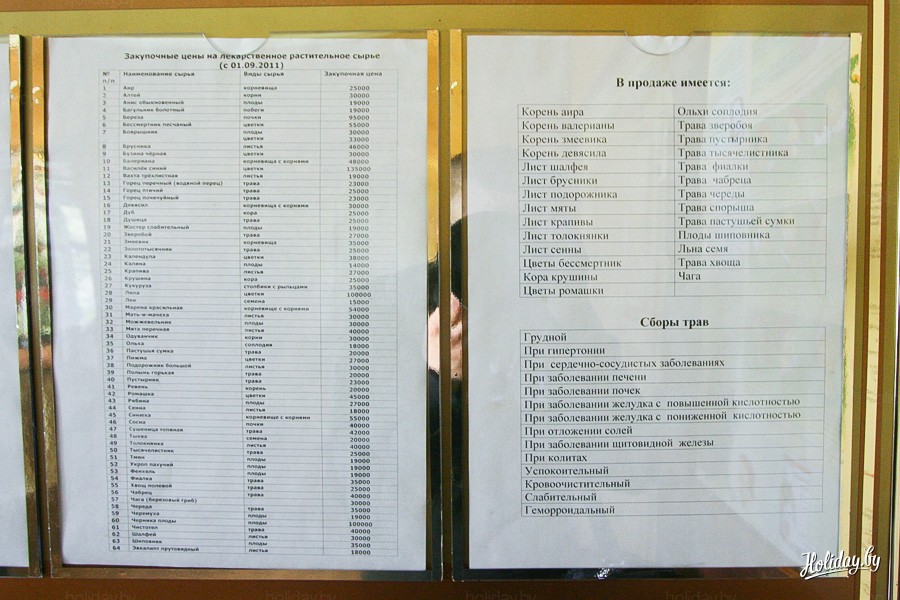 Закупочные цены на лекарственное растительное сырье
(с 01.09.2011)
№ п/п Наименование сырья Виды сырья Закупочная цена
1 Аир корневища 25000
2 Алтей корни 30000
3 Анис обыкновенный плоды 19000
4 Багульник болотный побеги 19000
5 Береза почки 95000
6 Бессмертник песчаный цветки 55000
7 Боярышник плоды 30000
цветки 33000
8 Брусника листья 46000
9 Бузина чёрная цветки 30000
10 Валериана корневища с корнями 48000
11 Василёк синий цветки 135000
12 Вахта трёхлистная листья 19000
13 Горец перечный (водяной перец) трава 23000
14 Горец птичий трава 25000
15 Горец почечуйный трава 23000
16 Девясил корневища с корнями 30000
17 Дуб кора 25000
18 Душица трава 25000
19 Жостер слабительный плоды 19000
20 Зверобой трава 27000
21 Змеевик корневища 35000
22 Золототысячник трава 25000
23 Календула цветки 38000
24 Калина плоды 14000
25 Крапива листья 27000
26 Крушина кора 25000
27 Кукуруза столбики с рыльцами 35000
28 Липа цветки 100000
29 Лен семена 15000
30 Марена красильная корневище с корнями 54000
31 Мать-и-мачеха листья 30000
32 Можжевельник плоды 30000
33 Мята перечная листья 40000
34 Одуванчик корни 30000
35 Ольха соплодия 18000
36 Пастушья сумка трава 20000
37 Пижма цветки 27000
38 Подорожник большой листья 30000
39 Полынь горькая трава 20000
40 Пустырник трава 23000
41 Ревень корень 20000
42 Ромашка цветки 45000
43 Рябина плоды 27000
44 Сенна листья 18000
45 Синюха корневище с корнями 55000
46 Сосна почки 40000
47 Сушеница топяная трава 42000
48 Тыква семена 20000
49 Толокнянка листья 40000
50 Тысячелистник трава 25000
51 Тмин плоды 19000
52 Укроп пахучий плоды 19000
53 Фенхель плоды 19000
54 Фиалка трава 35000
55 Хвощ полевой трава 25000
56 Чабрец трава 40000
57 Чага (березовый гриб) 30000
58 Череда трава 35000
59 Черемуха плоды 19000
60 Черника плоды плоды 100000
61 Чистотел трава 40000
62 Шалфей листья 30000
63 Шиповник плоды 35000
64 Эвкалипт прутовидный листья 18000
В продаже имеется:
Корень аира Ольхи соплодия
Корень валерианы Трава зверобоя
Корень змеевика Трава пустырника
Корень девясила Трава тысячелистника
Лист шалфея Трава фиалки
Лист брусники Трава чабреца
Лист подорожника Трава череды
Лист мяты Трава спорыша
Лист крапивы Трава пастушьей сумки
Лист толокнянки Плоды шиповника
Лист сенны Льна семя
Цветы бессмертник Трава хвоща
Кора крушины Чага
Цветы ромашки
Сборы трав
Грудной
При гипертонии
При сердечно-сосудистых заболеваниях
При заболевании печени
При заболевании почек
При заболевании желудка с повышенной кислотностью
При заболевании желудка с пониженной кислотностью
При отложении солей
При заболевании щитовидной железы
При колитах
Успокоительный
Кровоочистительный
Слабительный
Геморроидальный
Holiday.by